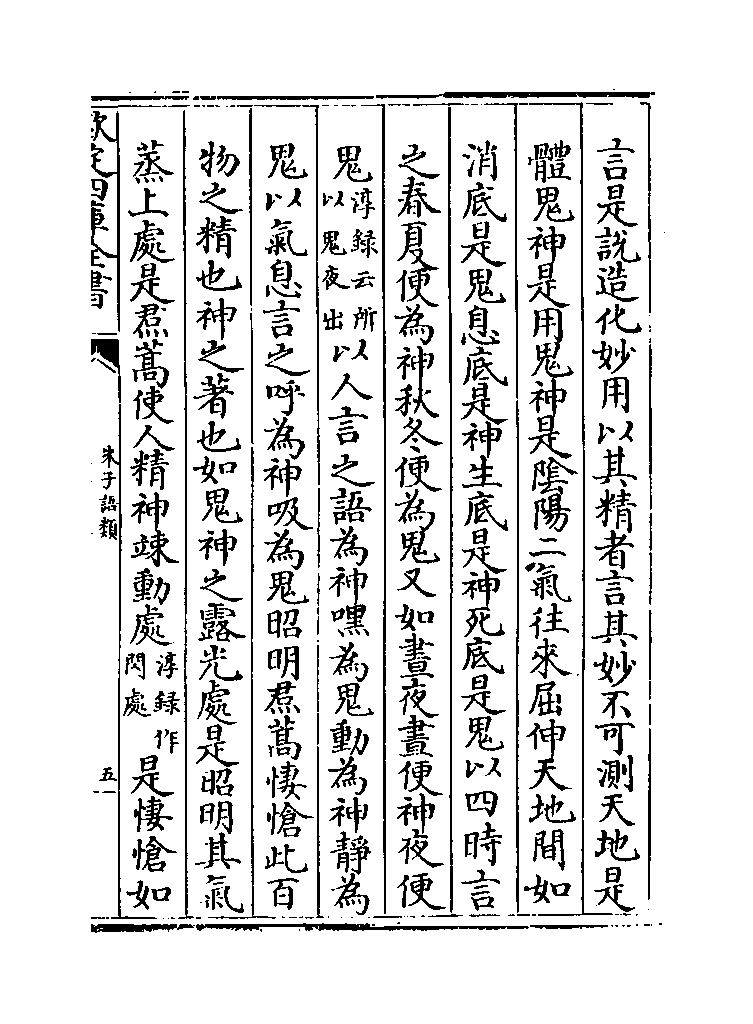 言是説造化妙用以其精者言其妙不可測天地是
體鬼神是用鬼神是隂陽二氣往來屈伸天地間如
消底是鬼息底是神生底是神死底是鬼以四時言
之春夏便為神秋冬便為鬼又如晝夜晝便神夜便
鬼淳録云所以鬼夜出以人言之語為神嘿為鬼動為神靜為
鬼以氣息言之呼為神吸為鬼昭明焄蒿悽愴此百
物之精也神之著也如鬼神之露光處是昭明其氣
蒸上處是焄蒿使人精神竦動處淳録作閃處是悽愴如
欽定四庫全書
朱子語類
五